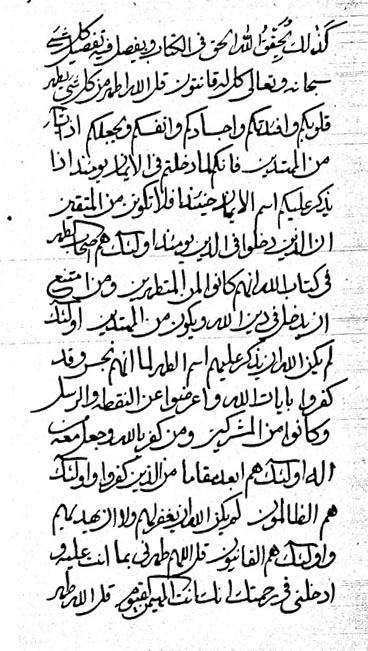 كذلك يحقق الله الحق في الكتاب ويفصل فيه تفصيل كل شيء
سبحانه وتعالى كل له قانتون قل الله اطهر من كل شيء يطهر
قلوبكم وافئدتكم واجسادكم وانفسكم ويجعلكم اذا شاء
من المهتدين فانكم لما دخلتم في الايمان يومئذ اذا
يذكر عليكم اسم الايمان حينئذ فلا تكونن من المتقين
ان الذين دخلوا في الدين يومئذ اولئك هم اصحاب الطهر
في كتاب الله انهم كانوا لمن المتطهرين ومن امتنع
ان يدخل في دين الله ويكون من المهتدين اولئك
لم يكن الله ان يذكر عليهم اسم الطهر لما انهم نجس وقد
كفروا بايات الله واعرضوا عن النقطة والرسل
وكانوا من المشركين ومن كفر بالله وجعل معه
اله اولئك هم ابعد مقاما من الذين كفروا واولئك
هم الظالمون لم يكن الله ان يغفر لهم ولا ان يهديهم
واولئك هم الفانيون قل اللهم طهرني بما انت عليه و
ادخلني في رحمتك انك انت المهيمن القيوم قل الله اطهر